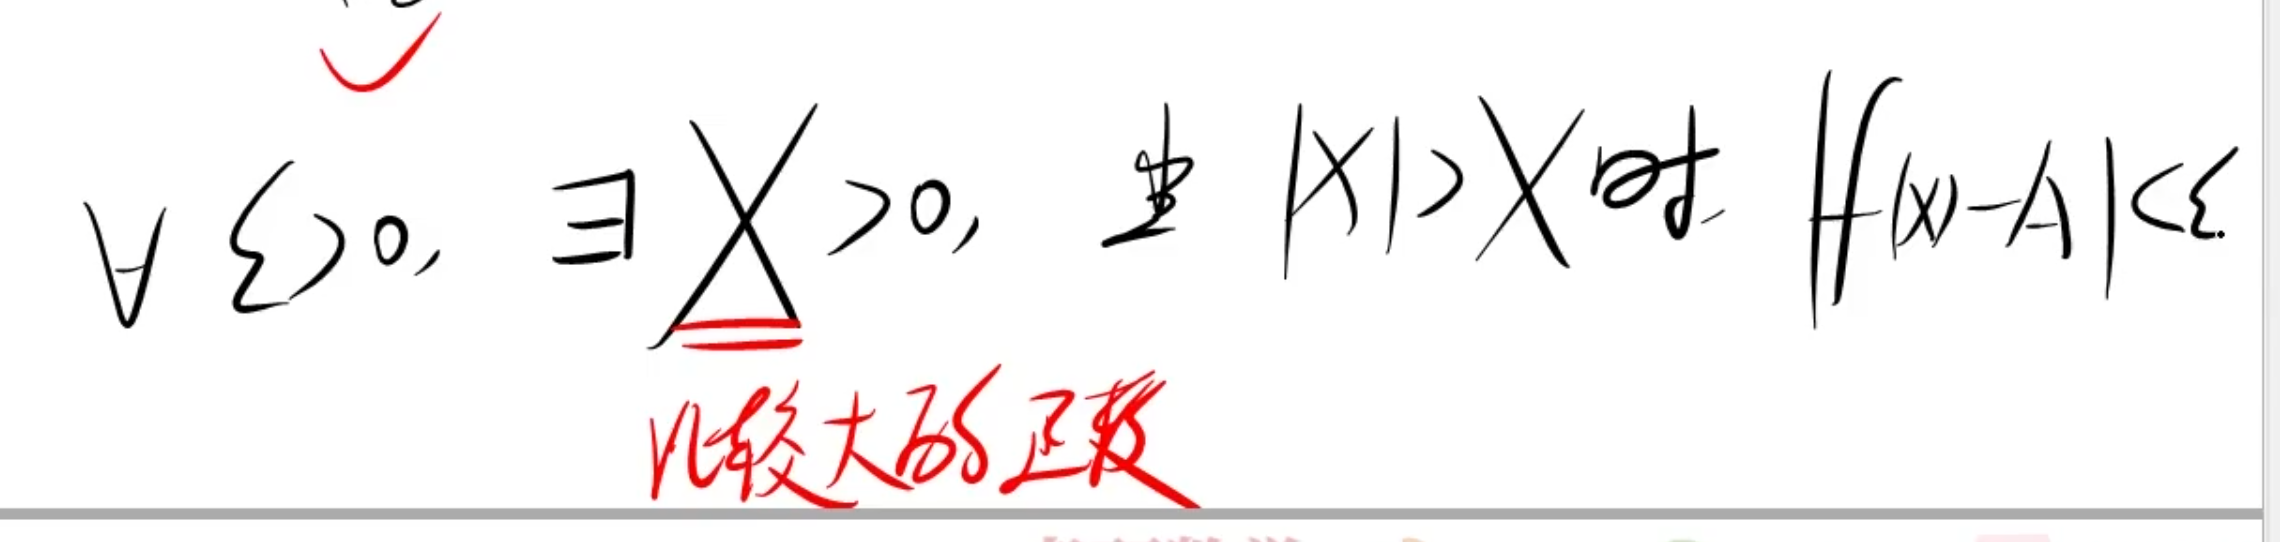 ∀ ε>0, ∃ X >0, 当 |x|>X 时, |f(x)-A|<ε.
比较大的正数